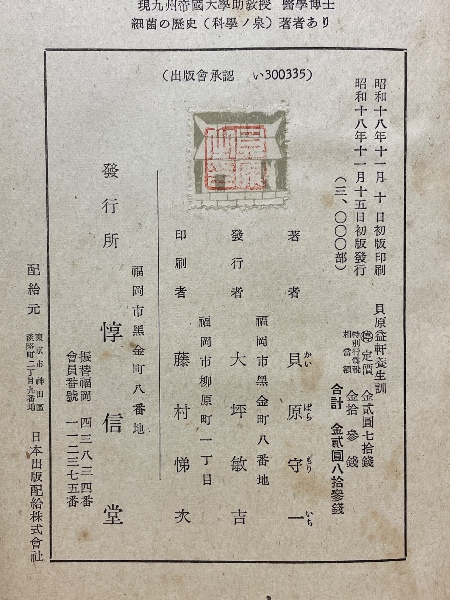 現九州帝國大學助教授 醫學博士
細菌の歴史（科學ノ泉）著者あり
（出版會承認 い300335）
昭和十八年十一月 十 日初版印刷
昭和十八年十一月十五日初版發行
（三、〇〇〇部）
貝原益軒養生訓
定價 金貳圓七拾錢
特別行爲税相當額 金拾參錢
合計 金貳圓八拾參錢
著者 貝原守一
かい ばら もり いち
福岡市黑金町八番地
發行者 大坪敏吉
福岡市柳原町一丁目
印刷者 藤村悌次
福岡市黑金町八番地
發行所 惇信堂
振替福岡 四三八三四番
會員番號 一一二三七五番
配給元 東京市神田區淡路町二丁目九番地 日本出版配給株式會社